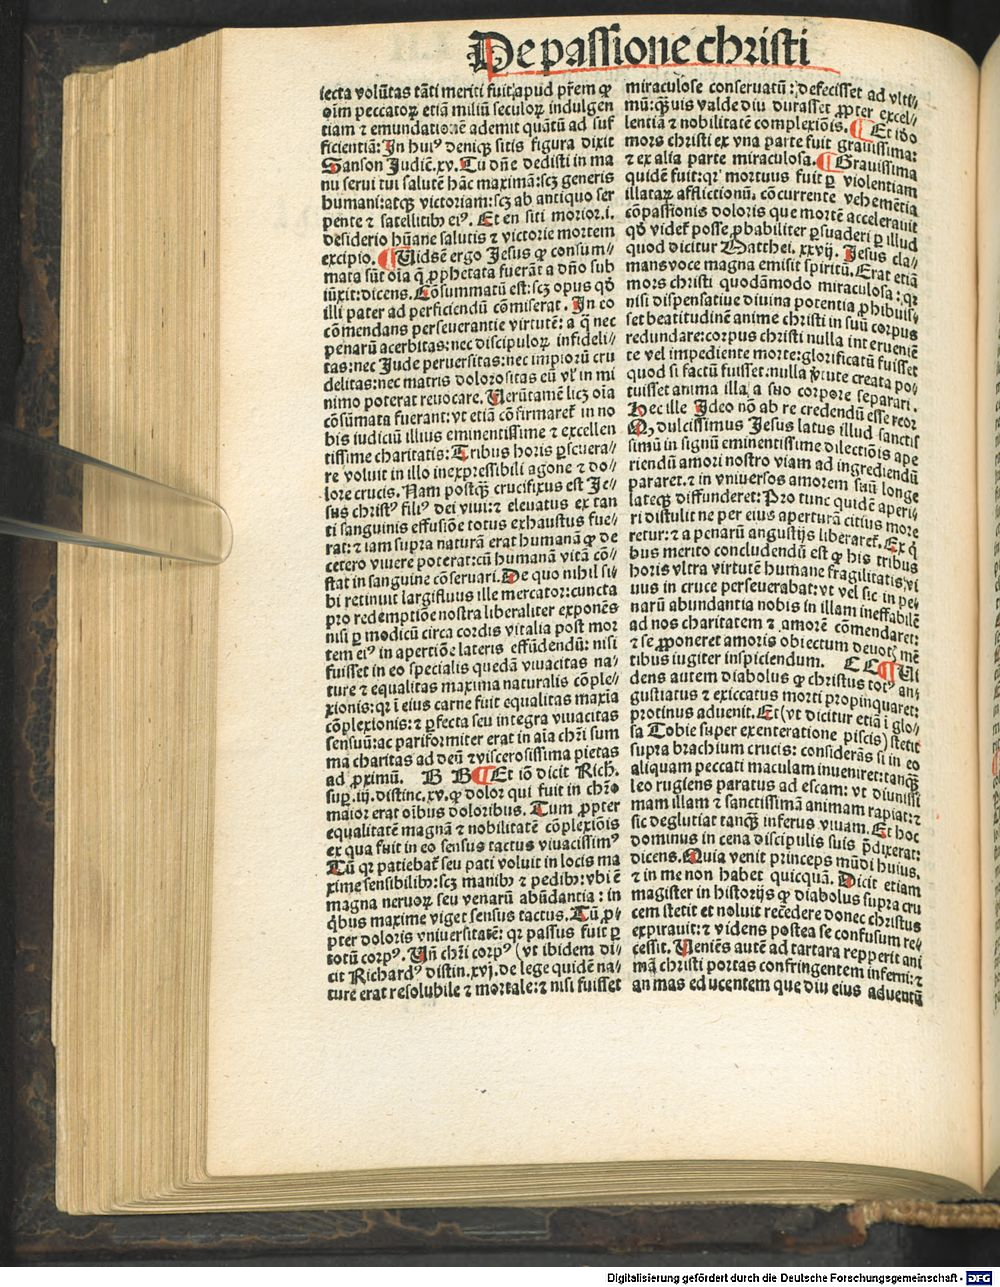 De passione christi
iecta volũtas tãti meriti fuit apud přem ꝙ
oĩm peccatoꝝ etiã miliũ seculoꝝ indulgen
tiam ⁊ emundationẽ ademit quãtũ ad suf
ficientiã: In huiꝰ deniqꝫ sitis figura dixit
Sanson Judič.xv. Tu dñe dedisti in ma
nu serui tui salutẽ hãc maximã: scꝫ generis
humani: atqꝫ victoriam: scꝫ ab antiquo ser
pente ⁊ satellitibꝫ eiꝰ. Et en siti morior.i.
desiderio hũane salutis ⁊ victorie mortem
excipio. ¶ Uidẽs ergo Jesus ꝙ consum⸗
mata sũt oĩa q̃ ꝓphetata fuerãt a dño sub
iũxit: dicens. Cõsummatũ est: scꝫ opus qđ
illi pater ad perficiendũ cõmiserat. In co
cõmendans perseuerantie virtutẽ: a q̃ nec
penarũ acerbitas: nec discipuloꝝ infideli⸗
tas: nec Jude peruersitas: nec impiorũ cru
delitas: nec matris dolorositas eũ vł in mi
nimo poterat reuocare. Uerũtamẽ licꝫ oĩa
cõsũmata fuerant: vt etiã cõfirmaret in no
bis iudiciũ illius eminentissime ⁊ excellen
tissime charitatis: Tribus horis ꝑseuera⸗
re voluit in illo inexpressibili agone ⁊ do⸗
lore crucis. Nam postꝙ̃ crucifixus est Je⸗
sus christꝰ filiꝰ dei viui: ⁊ eleuatus ex tan
ti sanguinis effusiõe totus exhaustus fue⸗
rat: ⁊ iam supra naturã erat humanã ꝙ de
cetero viuere poterat: cũ humanã vitã cõ⸗
stat in sanguine cõseruari. De quo nihil si⸗
bi retinuit largifluus ille mercator: cuncta
pro redemptiõe nostra liberaliter exponẽs
nisi ꝑ modicũ circa cordis vitalia post mor
tem eiꝰ in apertiõe lateris effũdendũ: nisi
fuisset in eo specialis quedã viuacitas na⸗
ture ⁊ equalitas maxima naturalis cõple⸗
xionis: qr ĩ eius carne fuit equalitas maxĩa
cõplexionis: ⁊ ꝑfecta seu integra viuacitas
sensuũ: ac pariformiter erat in aĩa chři sum
ma charitas ad deũ ⁊ viscerosissima pietas
ad ꝓximũ. B B ¶ Et iõ dicit Rich.
suꝑ.iij.distinc.xv. ꝙ dolor qui fuit in chřo
maior erat oĩbus doloribus. Tum ꝓpter
equalitatẽ magnã ⁊ nobilitatẽ cõplexiõis
ex qua fuit in eo sensus tactus viuacissimꝰ
Tũ qr patiebař seu pati voluit in locis ma
xime sensibilibꝫ: scꝫ manibꝫ ⁊ pedibꝫ: vbi ẽ
magna neruoꝝ seu venarũ abũdantia: in
q̃bus maxime viget sensus tactus. Tũ ꝓ⸗
pter doloris vniuersitatẽ: qr passus fuit ꝑ
totũ corpꝰ. Uñ chři corpꝰ (vt ibidem di⸗
cit Richardꝰ distin.xvj. de lege quidẽ na⸗
ture erat resolubile ⁊ mortale: ⁊ nisi fuisset
miraculose conseruatũ: defecisset ad vlti⸗
mũ: ꝙ̃uis valde diu durasset ꝓpter excel⸗
lentiã ⁊ nobilitatẽ complexiõis. ¶ Et iđo
mors christi ex vna parte fuit grauissima:
⁊ ex alia parte miraculosa. ¶ Grauissima
quidẽ fuit: qr mortuus fuit ꝑ violentiam
illataꝝ afflictionũ, cõcurrente vehemẽtia
cõpassionis doloris que mortẽ accelerauit
qđ videř posse ꝓbabiliter ꝑsuaderi ꝑ illud
quod dicitur Matthei. xxvij. Jesus cla⸗
mans voce magna emisit spiritũ. Erat etiã
mors christi quodãmodo miraculosa: qr
nisi dispensatiue diuina potentia ꝓhibuis⸗
set beatitudinẽ anime christi in suũ corpus
redundare: corpus christi nulla interueniẽ
te vel impediente morte: glorificatũ fuisset
quod si factũ fuisset: nulla v̓tute creata po⸗
tuisset anima illa a suo corpore separari.
Hec ille Ideo nõ ab re credendũ esse reor
Qꝫ dulcissimus Jesus latus illud sanctis
simũ in signũ eminentissime dilectiõis ape
riendũ amori nostro viam ad ingrediendũ
pararet. ⁊ in vniuersos amorem suũ longe
lateqꝫ diffunderet: Pro tunc quidẽ aperi⸗
ri distulit ne per eius aperturã citius more
retur: ⁊ a penarũ angustijs liberaret. Ex q̃
bus merito concludendũ est ꝙ his tribus
horis vltra virtutẽ humane fragilitatis vi
uus in cruce perseuerabat: vt vel sic in pe⸗
narũ abundantia nobis in illam ineffabilẽ
ad nos charitatem ⁊ amorẽ cõmendaret:
⁊ se ꝓponeret amoris obiectum deuotꝭ mẽ
tibus iugiter inspiciendum. C C ¶ Ui
dens autem diabolus ꝙ christus totꝰ an⸗
gustiatus ⁊ exiccatus morti propinquaret:
protinus aduenit. Et (vt dicitur etiã ĩ glo⸗
sa Tobie super exenteratione piscis) stetit
supra brachium crucis: considerãs si in eo
aliquam peccati maculam inueniret: tanꝙ̃
leo rugiens paratus ad escam: vt diuinissi
mam illam ⁊ sanctissimã animam rapiat: ⁊
sic deglutiat tanꝙ̃ inferus viuam. Et hoc
dominus in cena discipulis suis p̃dixerat:
dicens. Quia venit princeps mũdi huius,
⁊ in me non habet quicquã. Dicit etiam
magister in historijs ꝙ diabolus supra cru
cem stetit et noluit recẽdere donec christus
expirauit: ⁊ videns postea se confusum re⸗
cessit. Ueniẽs autẽ ad tartara repperit ani
mã christi portas confringentem inferni: ⁊
animas educentem que diu eius aduentũ
Digitalisierung gefördert durch die Deutsche Forschungsgemeinschaft - DFG